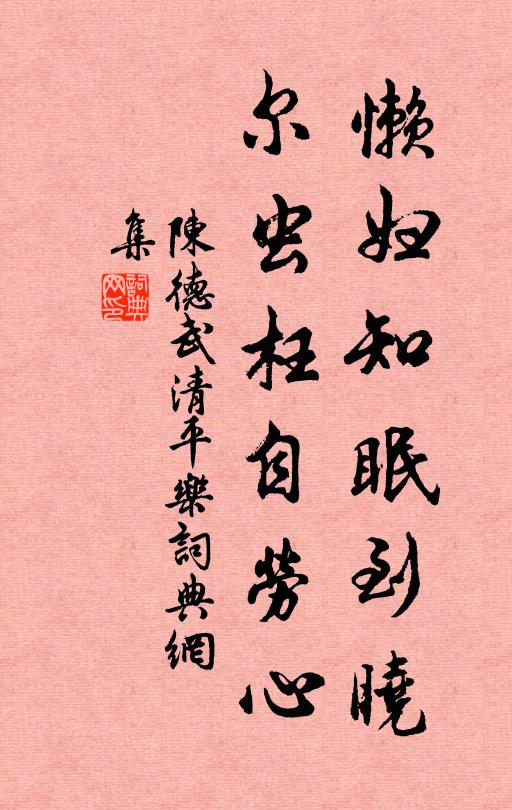 懒妇知眠到曉
尔虫枉自勞心
陳德武清平樂詞典網
集
詞典
网印